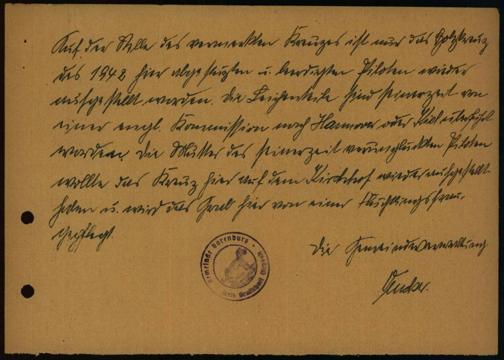 Auf der Stelle des vermerkten Kreuzes ist nur das Holzkreuz
des 1948 hier abgestürzten u. beerdigten Piloten wieder
aufgestellt worden. Die Leichenteile sind seinerzeit von
einer engl. Kommission nach Hannover oder Kiel überführt
worden. Die Mutter des seinerzeit verunglückten Piloten
wollte das Kreuz hier auf dem Kirchhof wieder aufgestellt
haben u. wird das Grab hier von einer Flüchtlingsfrau
gepflegt.
Die Gemeindeverwaltung
Gemeinde